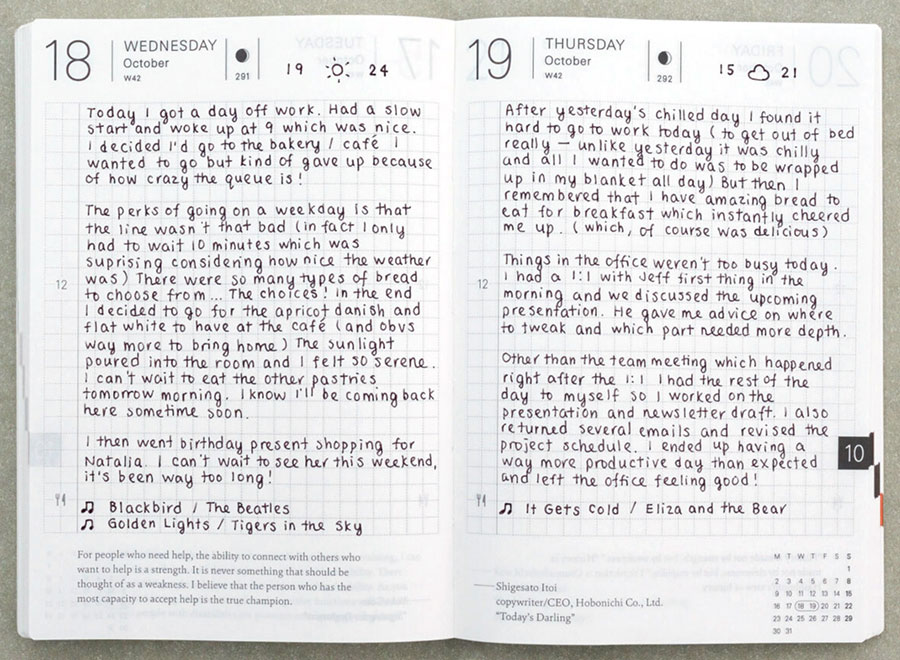 18
WEDNESDAY
October
W42
291
19 24
Today I got a day off work. Had a slow
start and woke up at 9 which was nice.
I decided I'd go to the bakery / café I
wanted to go but kind of gave up because
of how crazy the queue is!
The perks of going on a weekday is that
the line wasn't that bad (in fact I only
had to wait 10 minutes which was
suprising considering how nice the weather
was) There were so many types of bread
12
to choose from... The choices! In the end
I decided to go for the apricot danish and
flat white to have at the café (and obvs
way more to bring home) The sunlight
poured into the room and I felt so serene.
I can't wait to eat the other pastries
tomorrow morning. I know I'll be coming back
here sometime soon.
I then went birthday present shopping for
Natalia. I can't wait to see her this weekend,
it's been way too long!
♫ Blackbird / The Beatles
♫ Golden Lights / Tigers in the Sky
For people who need help, the ability to connect with others who
want to help is a strength. It is never something that should be
thought of as a weakness. I believe that the person who has the
most capacity to accept help is the true champion.
19
THURSDAY
October
W42
292
15 21
After yesterday's chilled day I found it
hard to go to work today (to get out of bed
really — unlike yesterday it was chilly
and all I wanted to do was to be wrapped
up in my blanket all day) But then I
remembered that I have amazing bread to
eat for breakfast which instantly cheered
me up. (which, of course was delicious)
Things in the office weren't too busy today.
12
I had a 1:1 with Jeff first thing in the
morning and we discussed the upcoming
presentation. He gave me advice on where
to tweak and which part needed more depth.
Other than the team meeting which happened
right after the 1:1 I had the rest of the
day to myself so I worked on the
presentation and newsletter draft. I also
returned several emails and revised the
project schedule. I ended up having a
way more productive day than expected
and left the office feeling good!
10
♫ It Gets Cold / Eliza and the Bear
Shigesato Itoi
copywriter/CEO, Hobonichi Co., Ltd.
"Today's Darling"
M T W T F S S
1
2 3 4 5 6 7 8
9 10 11 12 13 14 15
16 17 18 19 20 21 22
23 24 25 26 27 28 29
30 31